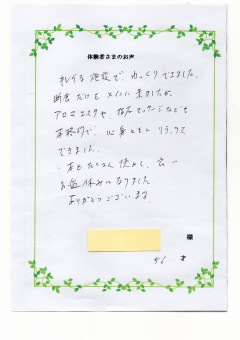 体験者さまのお声
キレイな施設で ゆっくりできました。
断食だけをメインに来ましたが、
アロマエステや、指圧マッサージなども
本格的で、心身ともに リラックス
できました。
本もたくさん読めて、良い
お盆休みになりました。
ありがとうございます。
様
56 才